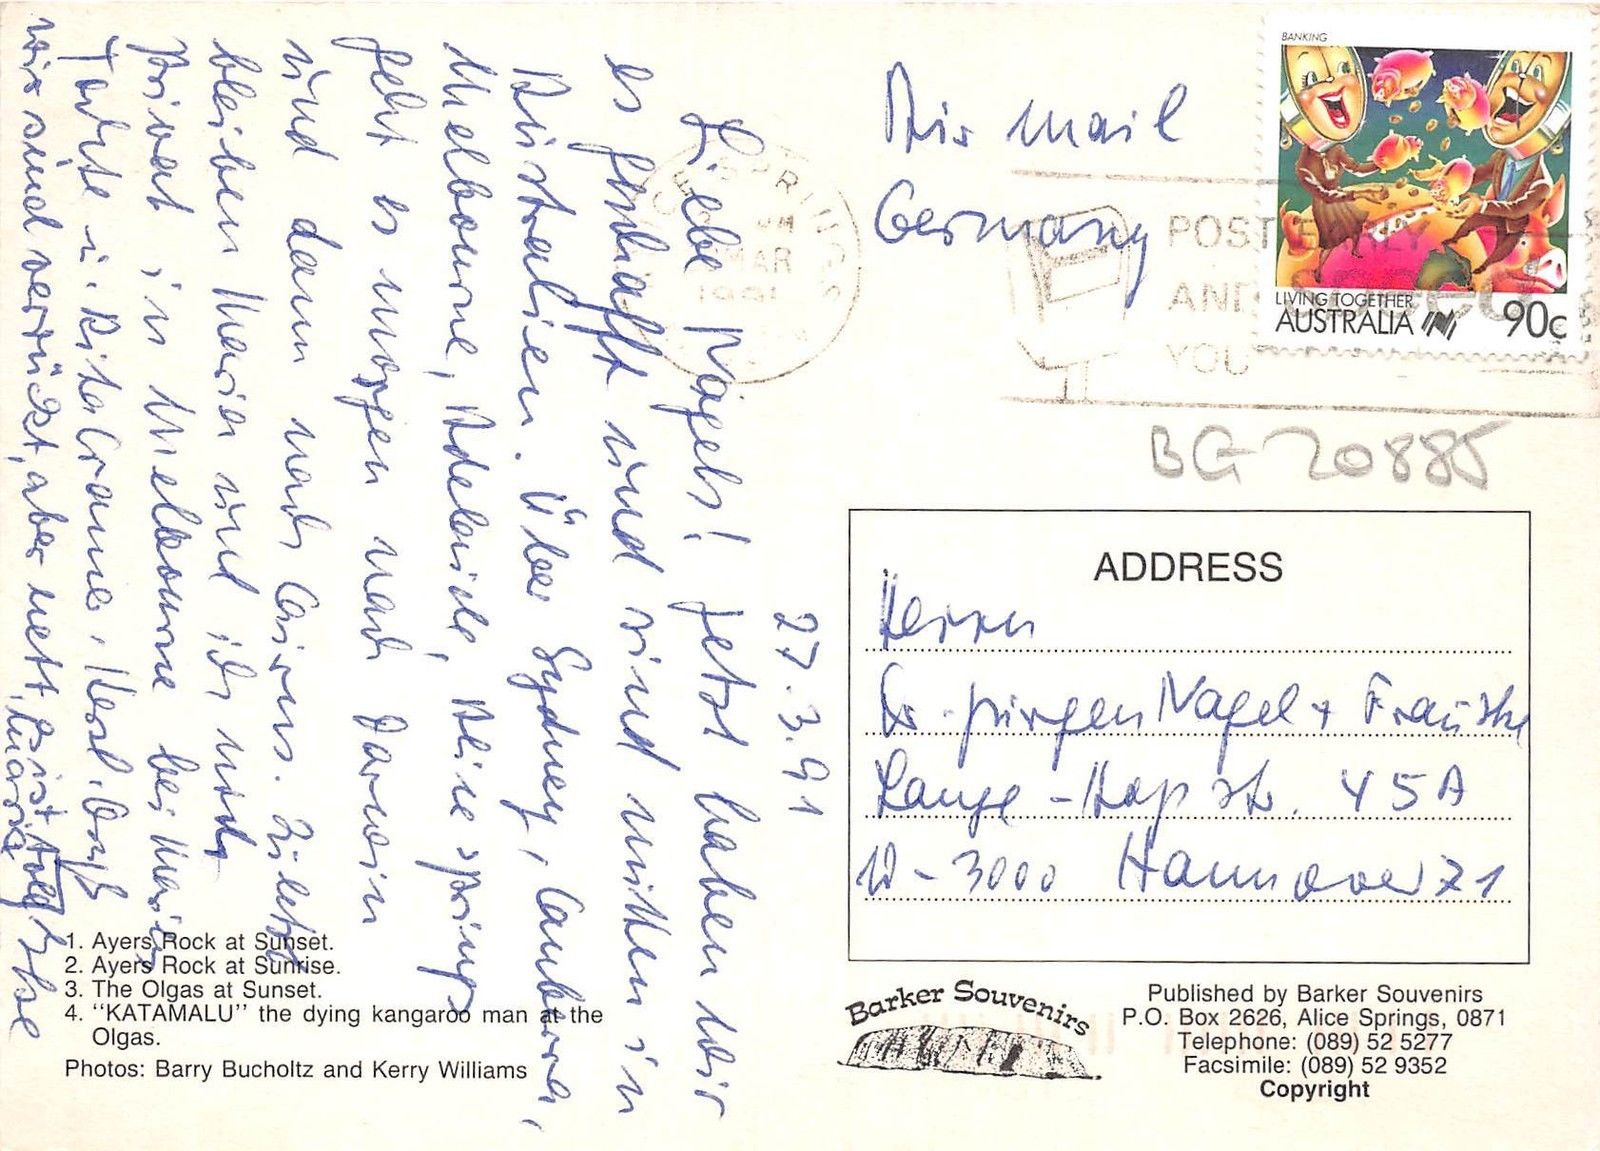 27.3.91
Liebe Nagels! Jetzt haben wir
es geschafft und sind mitten in
Australien. Über Sydney, Canberra,
Melbourne, Adelaide, Alice Springs
geht es morgen nach Darwin
und dann nach Cairns. Zuletzt
bleiben Maria und ich noch
privat in Melbourne bei
wir sind verrückt, aber nett
Air mail
Germany
BANKING
LIVING TOGETHER
AUSTRALIA 90c
SPRINGS
MAR
1991
POST EARLY
AND
YOU
BG 20885
ADDRESS
Herrn
Dr. Jürgen Nagel + Frau
Lange-Hop-Str. 45A
W-3000 Hannover 71
1. Ayers Rock at Sunset.
2. Ayers Rock at Sunrise.
3. The Olgas at Sunset.
4. "KATAMALU" the dying kangaroo man at the
Olgas.
Photos: Barry Bucholtz and Kerry Williams
Barker Souvenirs
Published by Barker Souvenirs
P.O. Box 2626, Alice Springs, 0871
Telephone: (089) 52 5277
Facsimile: (089) 52 9352
Copyright